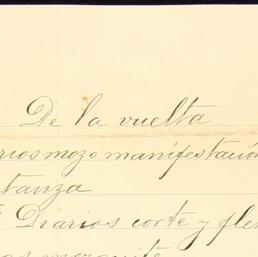 De la vuelta
rios mozo manifestación
tanza
Diarios corte y fle